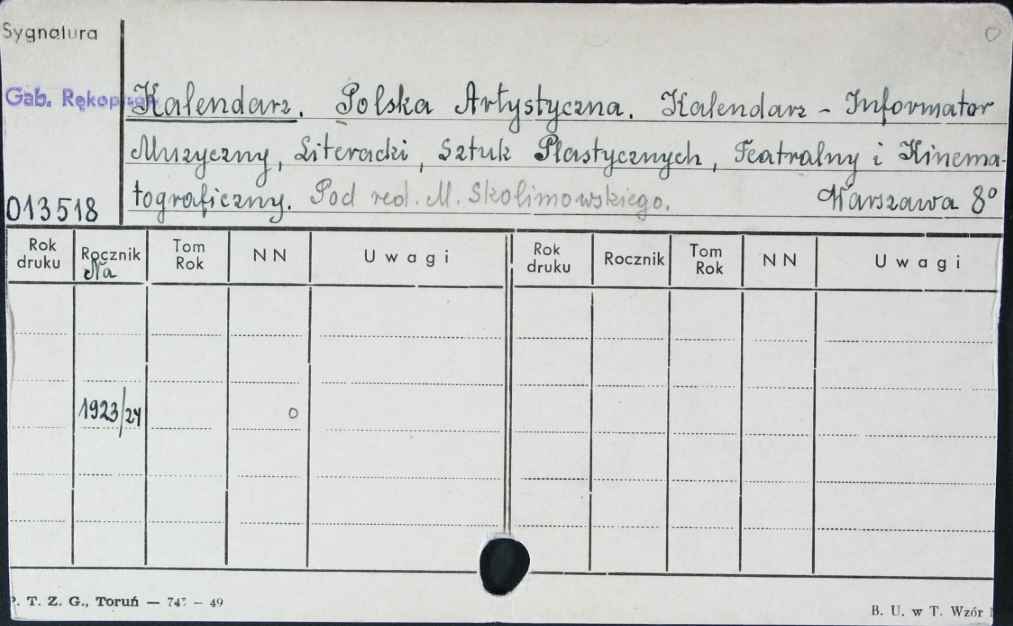 Sygnatura
Gab. Rękop
Kalendarz. Polska Artystyczna. Kalendarz - Informator
Muzyczny, Literacki, Sztuk Plastycznych, Teatralny i Kinema-
tograficzny. Pod red. M. Skolimowskiego. Warszawa 8°
013518
Rok druku Rocznik Tom Rok NN Uwagi Rok druku Rocznik Tom Rok NN Uwagi
Na
1923/24 0
T. Z. G., Toruń — 74 – 49
B. U. w T. Wzór